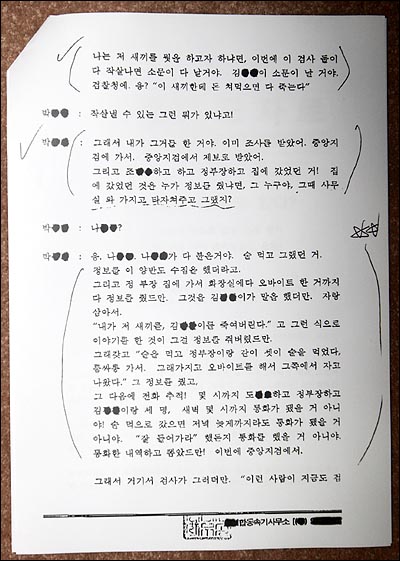 나는 저 새끼를 뭣을 하고자 하냐면, 이번에 이 검사 둘이
다 작살나면 소문이 다 날거야. 김●●이 소문이 난 거야.
검찰청에. 응? "이 새끼한테 돈 처먹으면 다 죽는다"
박●● : 작살낼 수 있는 그런 뭐가 있냐고!
박●● : 그래서 내가 그거를 한 거야. 이미 조사를 받았어. 중앙지
검에 가서. 중앙지검에서 제보로 받았어.
그리고 조●●하고 하고 정부장하고 집에 갔었던 거! 집
에 갔었던 것은 누가 정보를 줬냐면, 그 누구야, 그때 사무
실 와 가지고 타자쳐주고 그랬지?
박●● : 나●●?
박●● : 응. 나●●. 나●●가 다 분은거야. 술 먹고 그랬던 거.
정보를 이 양반도 수집은 했더라고.
그리고 정 부장 집에 가서 화장실에다 오바이트 한 거까지
다 정보를 줬드만. 그것을 김●●이가 말을 했더만. 자랑
삼아서.
"내가 저 새끼를, 김●●이를 죽여버린다." 고 그런 식으로
이야기를 한 것이 그걸 정보를 줘버렸드만.
그래갖고 "술을 먹고 정부장이랑 같이 셋이 술을 먹었다,
룸싸롱 가서. 그래가지고 오바이트를 해서 그쪽에서 자고
나왔다." 그 정보를 줬고,
그 다음에 전화 추적! 몇 시까지 도●●하고 정부장하고
김●●이랑 세 명, 새벽 몇 시까지 통화가 됐을 거 아니
야! 술 먹으로 갔으면 저녁 늦게까지라도 통화가 됐을 거
아니야. "잘 들어가라" 했든지 통화를 했을 거 아니야.
통화한 내역하고 뽑았드만! 이번에 중앙지검에서.
그래서 거기서 검사가 그러더만. "이런 사람이 지금도 검
합동속기사무소